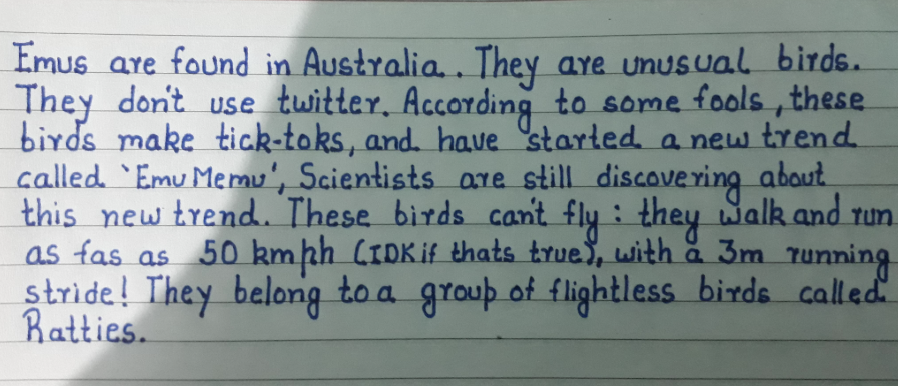 Emus are found in Australia. They are unusual birds.
They don't use twitter. According to some fools, these
birds make tick-toks, and have started a new trend
called 'Emu Memu', Scientists are still discovering about
this new trend. These birds can't fly: they walk and run
as fas as 50 kmph (IDK if thats true), with a 3m running
stride! They belong to a group of flightless birds called
Ratties.